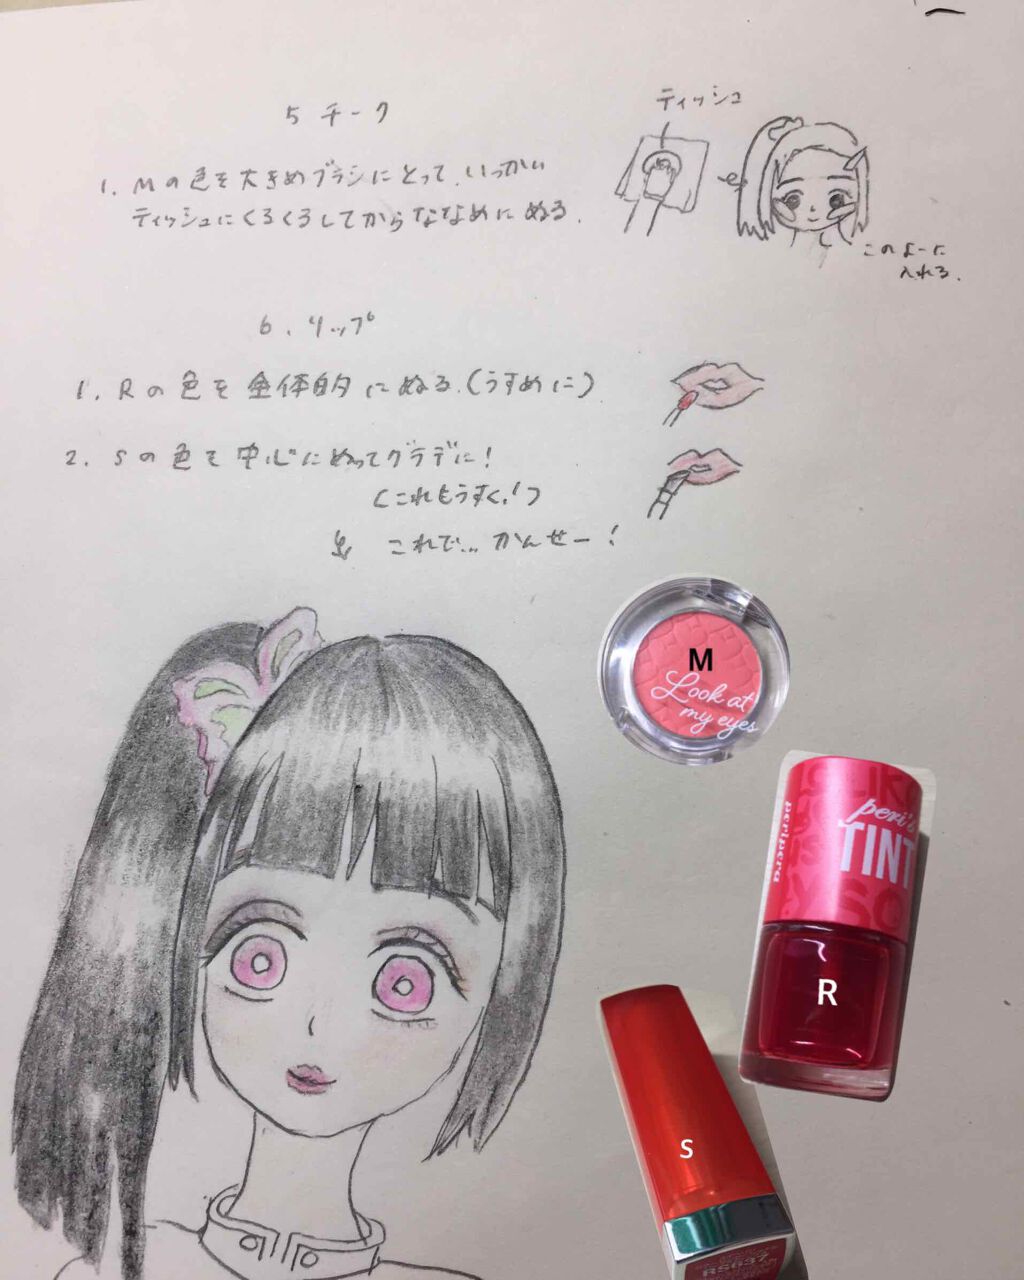 5 チーク
ティッシュ
1. Mの色を大きめブラシにとって、いっかい
ティッシュにくるくるしてからななめにぬる.
このよーに
入れる.
6. リップ
1. Rの色を全体的にぬる.(うすめに)
2. Sの色を中心にぬってグラデに!
(これもうすく!)
これで... かんせー!
M
Look at
my eyes
peri's
TINT
peripera
R
S
RS637